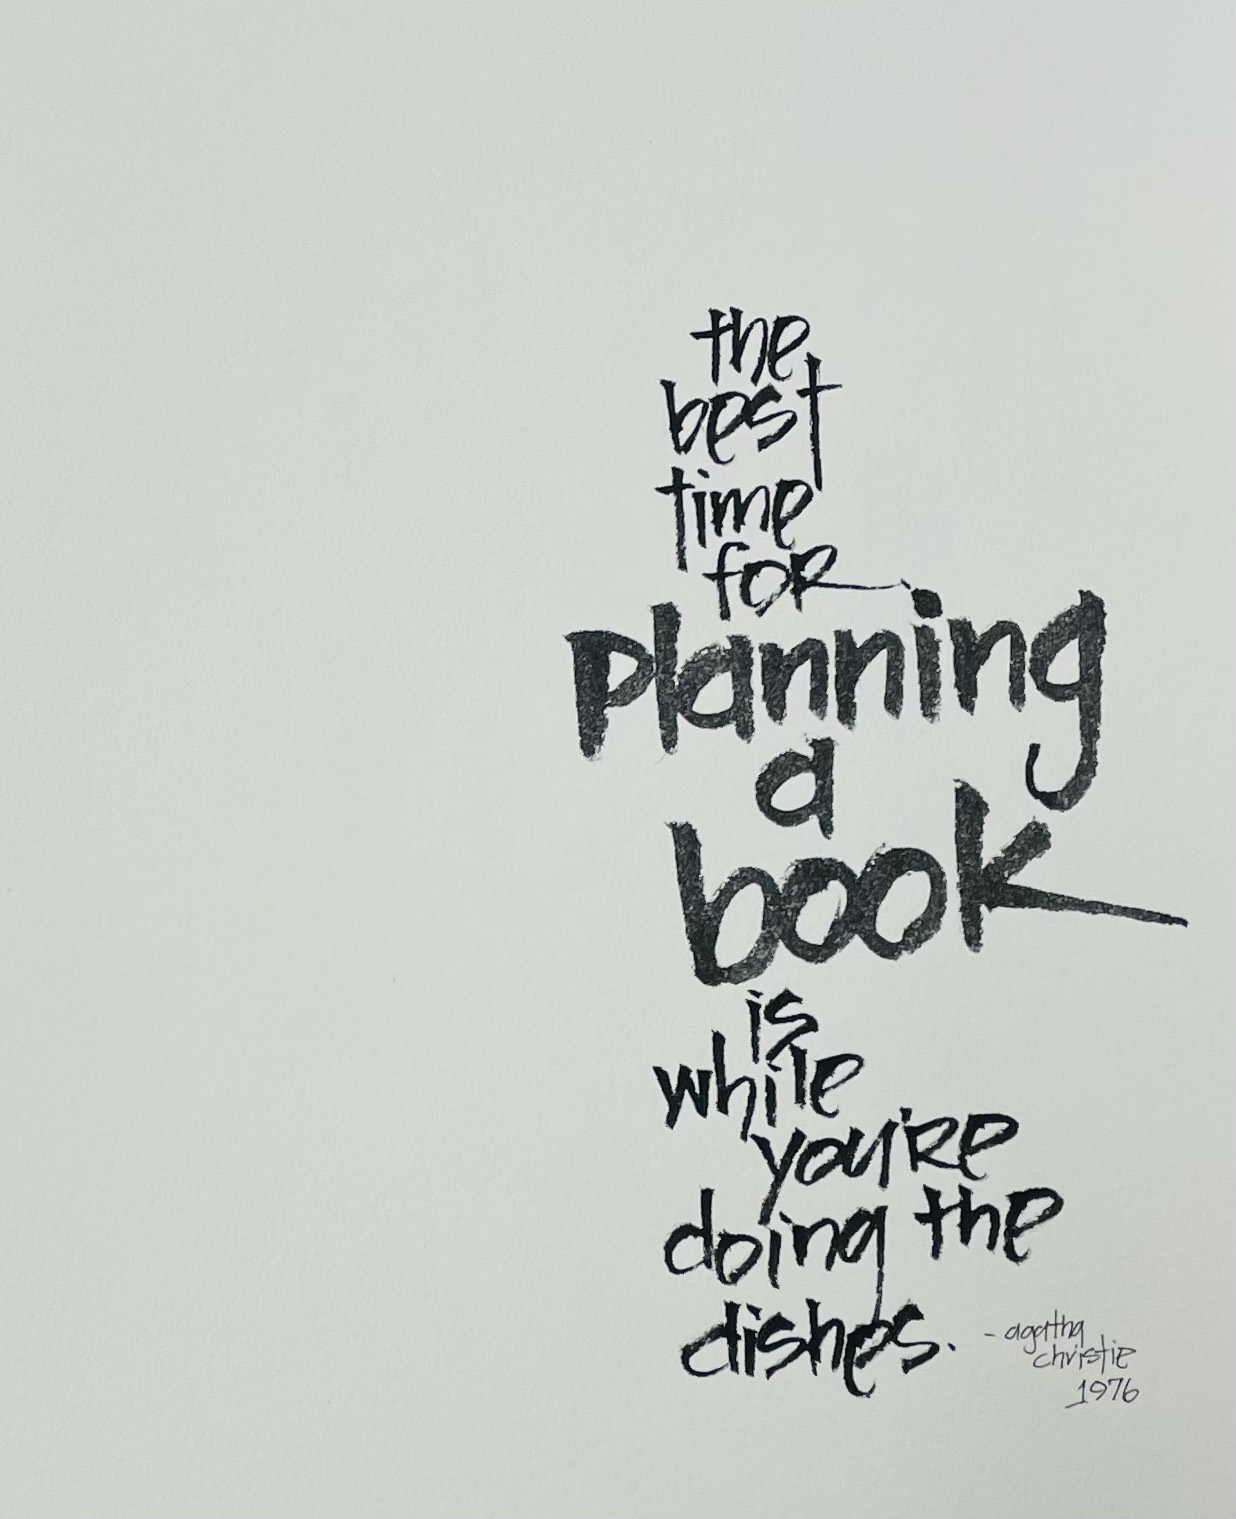 the
best
time
for
planning
a
book
is
while
you're
doing the
dishes.
- agatha
christie
1976